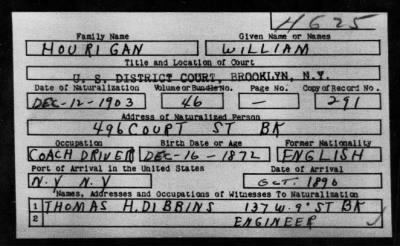 H625
Family Name Given Name or Names
HOURIGAN WILLIAM
Title and Location of Court
U. S. DISTRICT COURT, BROOKLYN, N.Y.
Date of Naturalization Volume or Bundle No. Page No. Copy of Record No.
DEC-12-1903 46 — 291
Address of Naturalized Person
496 COURT ST BK
Occupation Birth Date or Age Former Nationality
COACH DRIVER DEC-16-1872 ENGLISH
Port of Arrival in the United States Date of Arrival
N.Y N.Y OCT. 1890
Names, Addresses and Occupations of Witnesses To Naturalization
1 THOMAS H. DIBBINS 137 W. 9" ST BK
2 ENGINEER